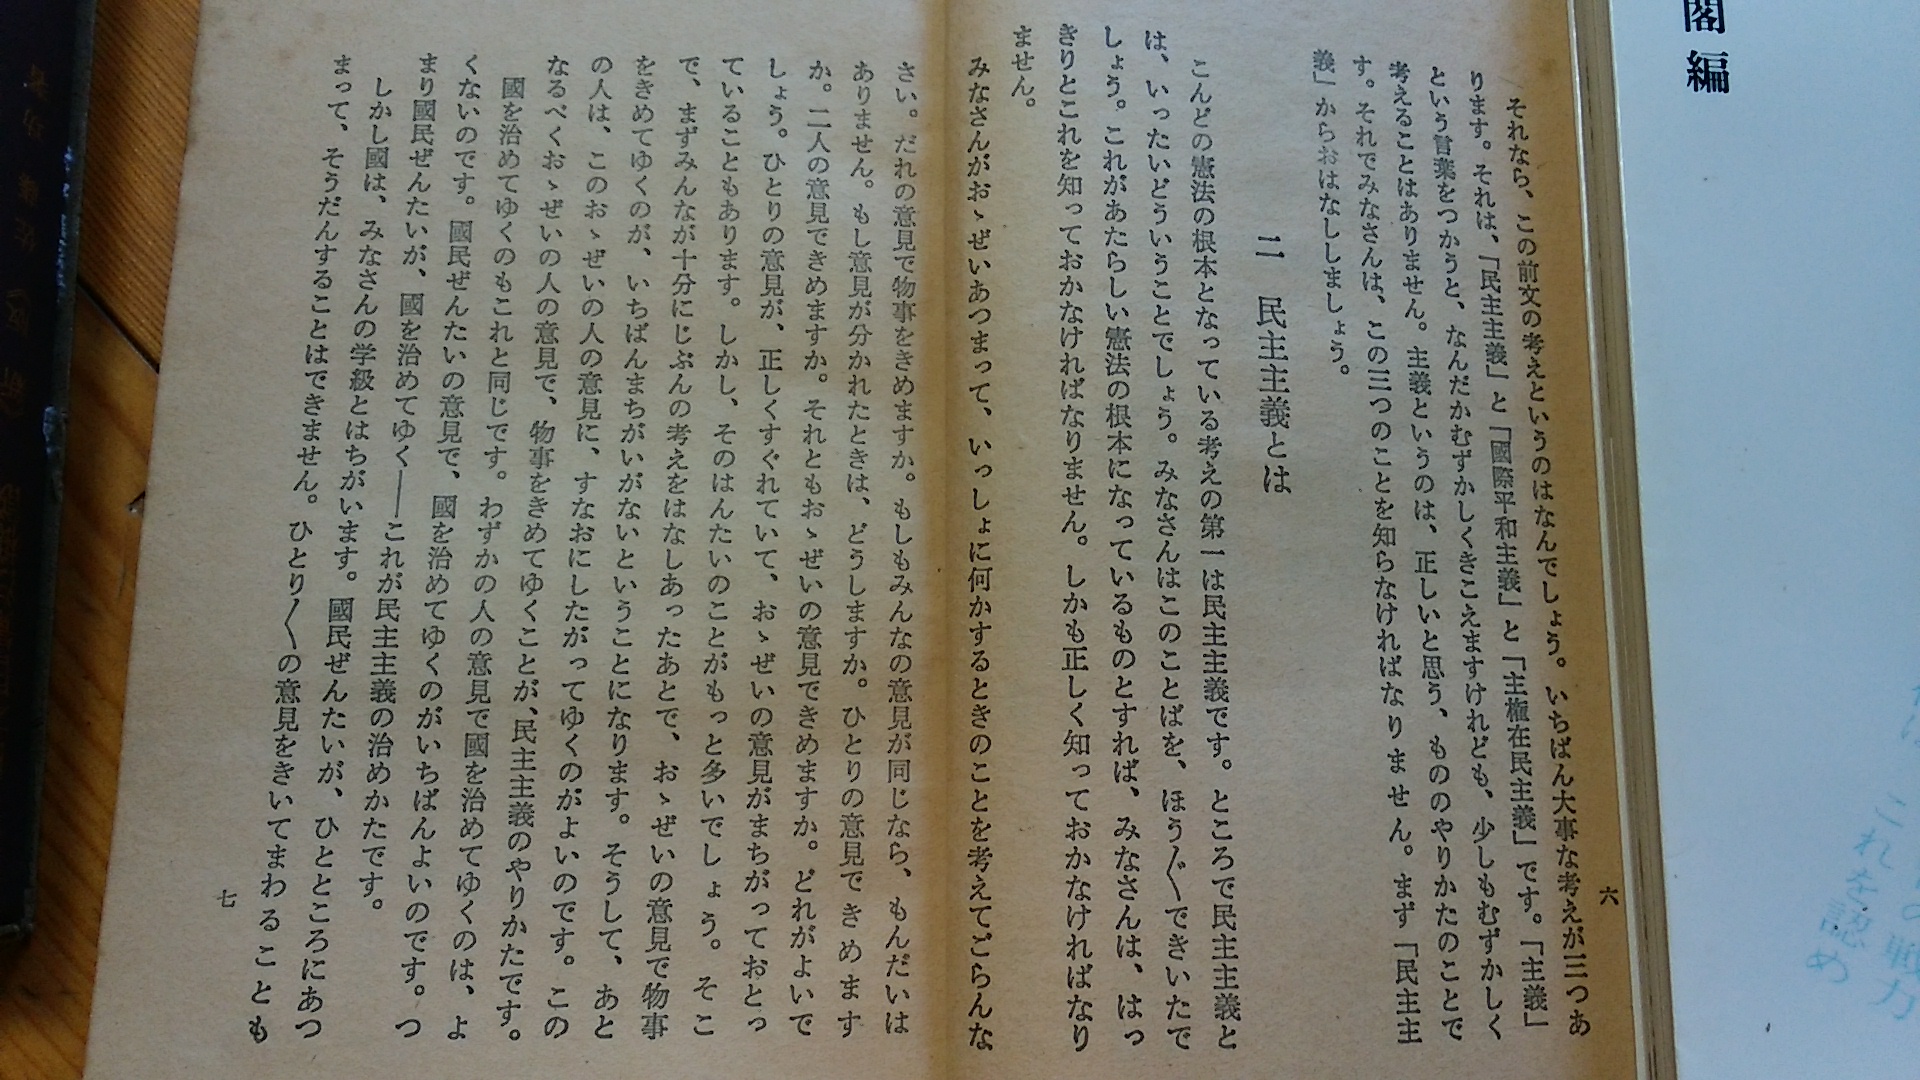 閣編
六
それなら、この前文の考えというのはなんでしょう。いちばん大事な考えが三つあ
ります。それは、「民主主義」と「國際平和主義」と「主権在民主義」です。「主義」
という言葉をつかうと、なんだかむずかしくきこえますけれども、少しもむずかしく
考えることはありません。主義というのは、正しいと思う、もののやりかたのことで
す。それでみなさんは、この三つのことを知らなければなりません。まず「民主主
義」からおはなししましょう。
二 民主主義とは
こんどの憲法の根本となっている考えの第一は民主主義です。ところで民主主義と
は、いったいどういうことでしょう。みなさんはこのことばを、ほう〲できいたで
しょう。これがあたらしい憲法の根本になっているものとすれば、みなさんは、はっ
きりとこれを知っておかなければなりません。しかも正しく知っておかなければなり
ません。
みなさんがおゝぜいあつまって、いっしょに何かするときのことを考えてごらんな
さい。だれの意見で物事をきめますか。もしもみんなの意見が同じなら、もんだいは
ありません。もし意見が分かれたときは、どうしますか。ひとりの意見できめます
か。二人の意見できめますか。それともおゝぜいの意見できめますか。どれがよいで
しょう。ひとりの意見が、正しくすぐれていて、おゝぜいの意見がまちがっておとっ
ていることもあります。しかし、そのはんたいのことがもっと多いでしょう。そこ
で、まずみんなが十分にじぶんの考えをはなしあったあとで、おゝぜいの意見で物事
をきめてゆくのが、いちばんまちがいがないということになります。そうして、あと
の人は、このおゝぜいの人の意見に、すなおにしたがってゆくのがよいのです。この
なるべくおゝぜいの人の意見で、物事をきめてゆくことが、民主主義のやりかたです。
國を治めてゆくのもこれと同じです。わずかの人の意見で國を治めてゆくのは、よ
くないのです。國民ぜんたいの意見で、國を治めてゆくのがいちばんよいのです。つ
まり國民ぜんたいが、國を治めてゆく――これが民主主義の治めかたです。
しかし國は、みなさんの学級とはちがいます。國民ぜんたいが、ひとところにあつ
まって、そうだんすることはできません。ひとり〳〵の意見をきいてまわることも
七